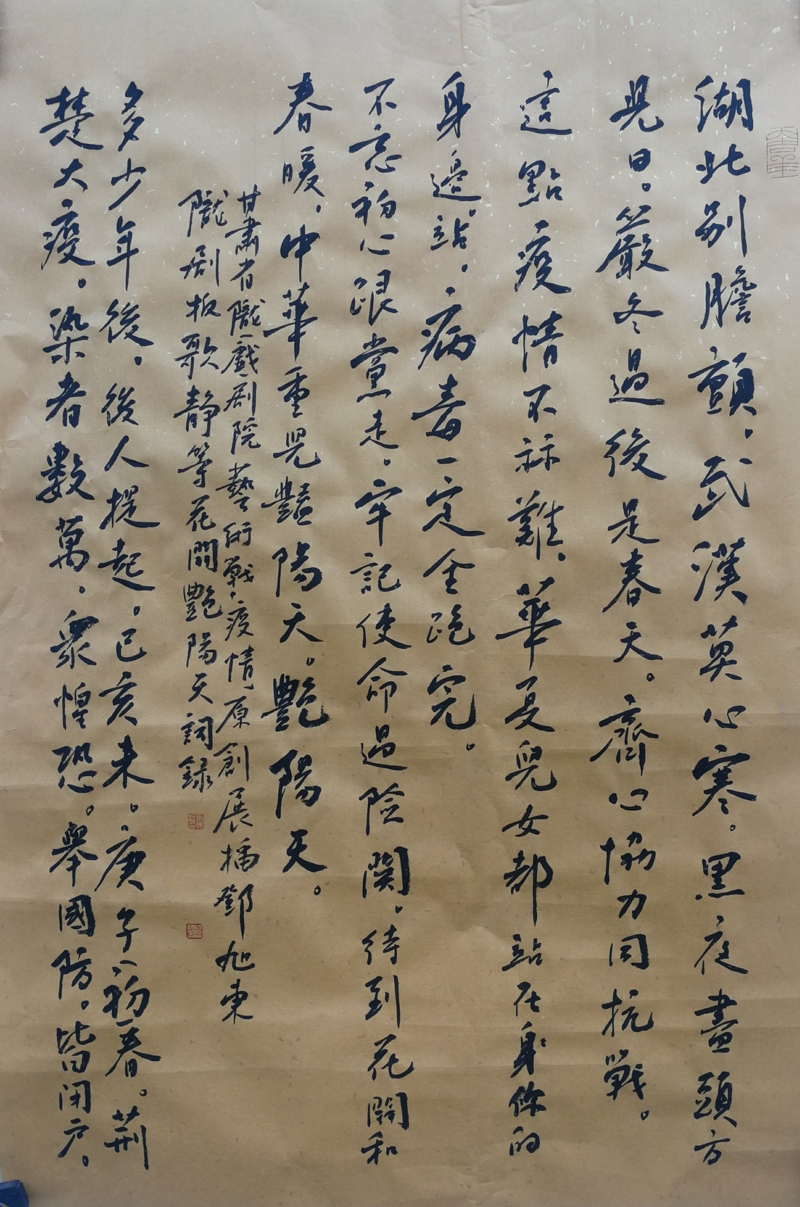 湖北别膽顫，武漢莫心寒。黑夜盡頭方
見日。嚴冬過後是春天。齊心協力同抗戰。
這點疫情不祘難，華夏兒女都站在身你的
身邊站，病毒一定全跪完。
不忘初心跟黨走，牢記使命過險関，待到花開和
春暖，中華重見豔陽天。艷陽天。
甘肅省隴戲剧院藝術戰疫情原創展播鄧旭東
隴剧板歌静等花開艷陽天詞録
多少年後，後人提起。己亥末。庚子初春。荆
楚大疫。染者數萬，衆惶恐。舉國防，皆闭户。